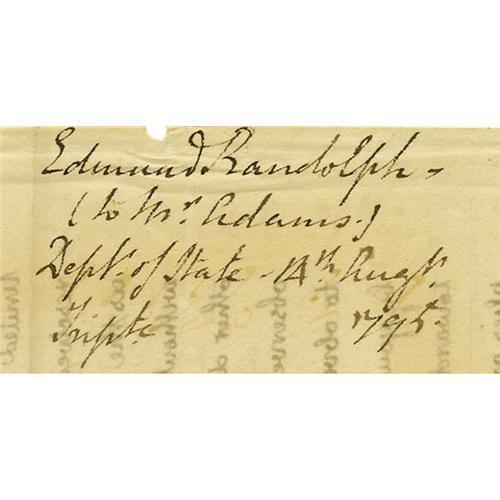 Edmund Randolph -
(to Mr. Adams.)
Deptt. of State - 14th. Augt.
Tripte. 1795.